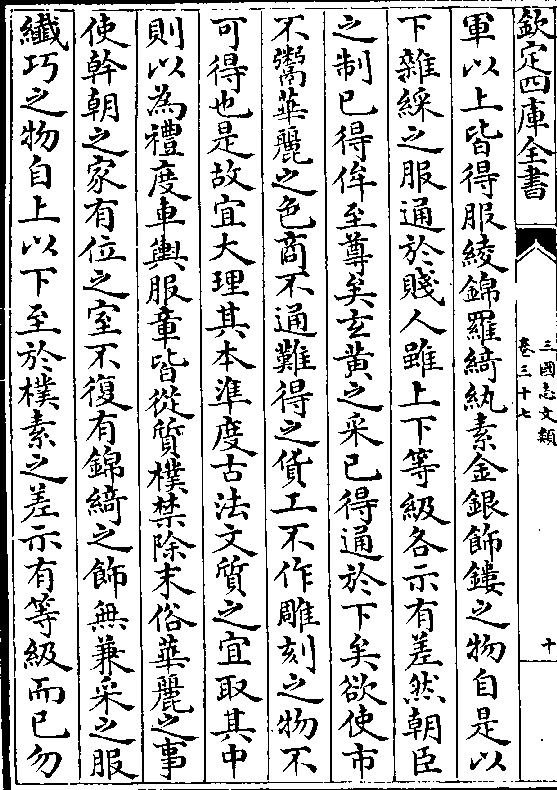 欽定四庫全書
三國志文類
卷三十七
十
軍以上皆得服綾錦羅綺紈素金銀飾鏤之物自是以
下雜綵之服通於賤人雖上下等級各示有差然朝臣
之制已得侔至尊矣玄黄之采已得通於下矣欲使市
不鬻華麗之色商不通難得之貨工不作雕刻之物不
可得也是故宜大理其本準度古法文質之宜取其中
則以為禮度車輿服章皆從質樸禁除末俗華麗之事
使幹朝之家有位之室不復有錦綺之飾無兼采之服
纖巧之物自上以下至於樸素之差示有等級而已勿